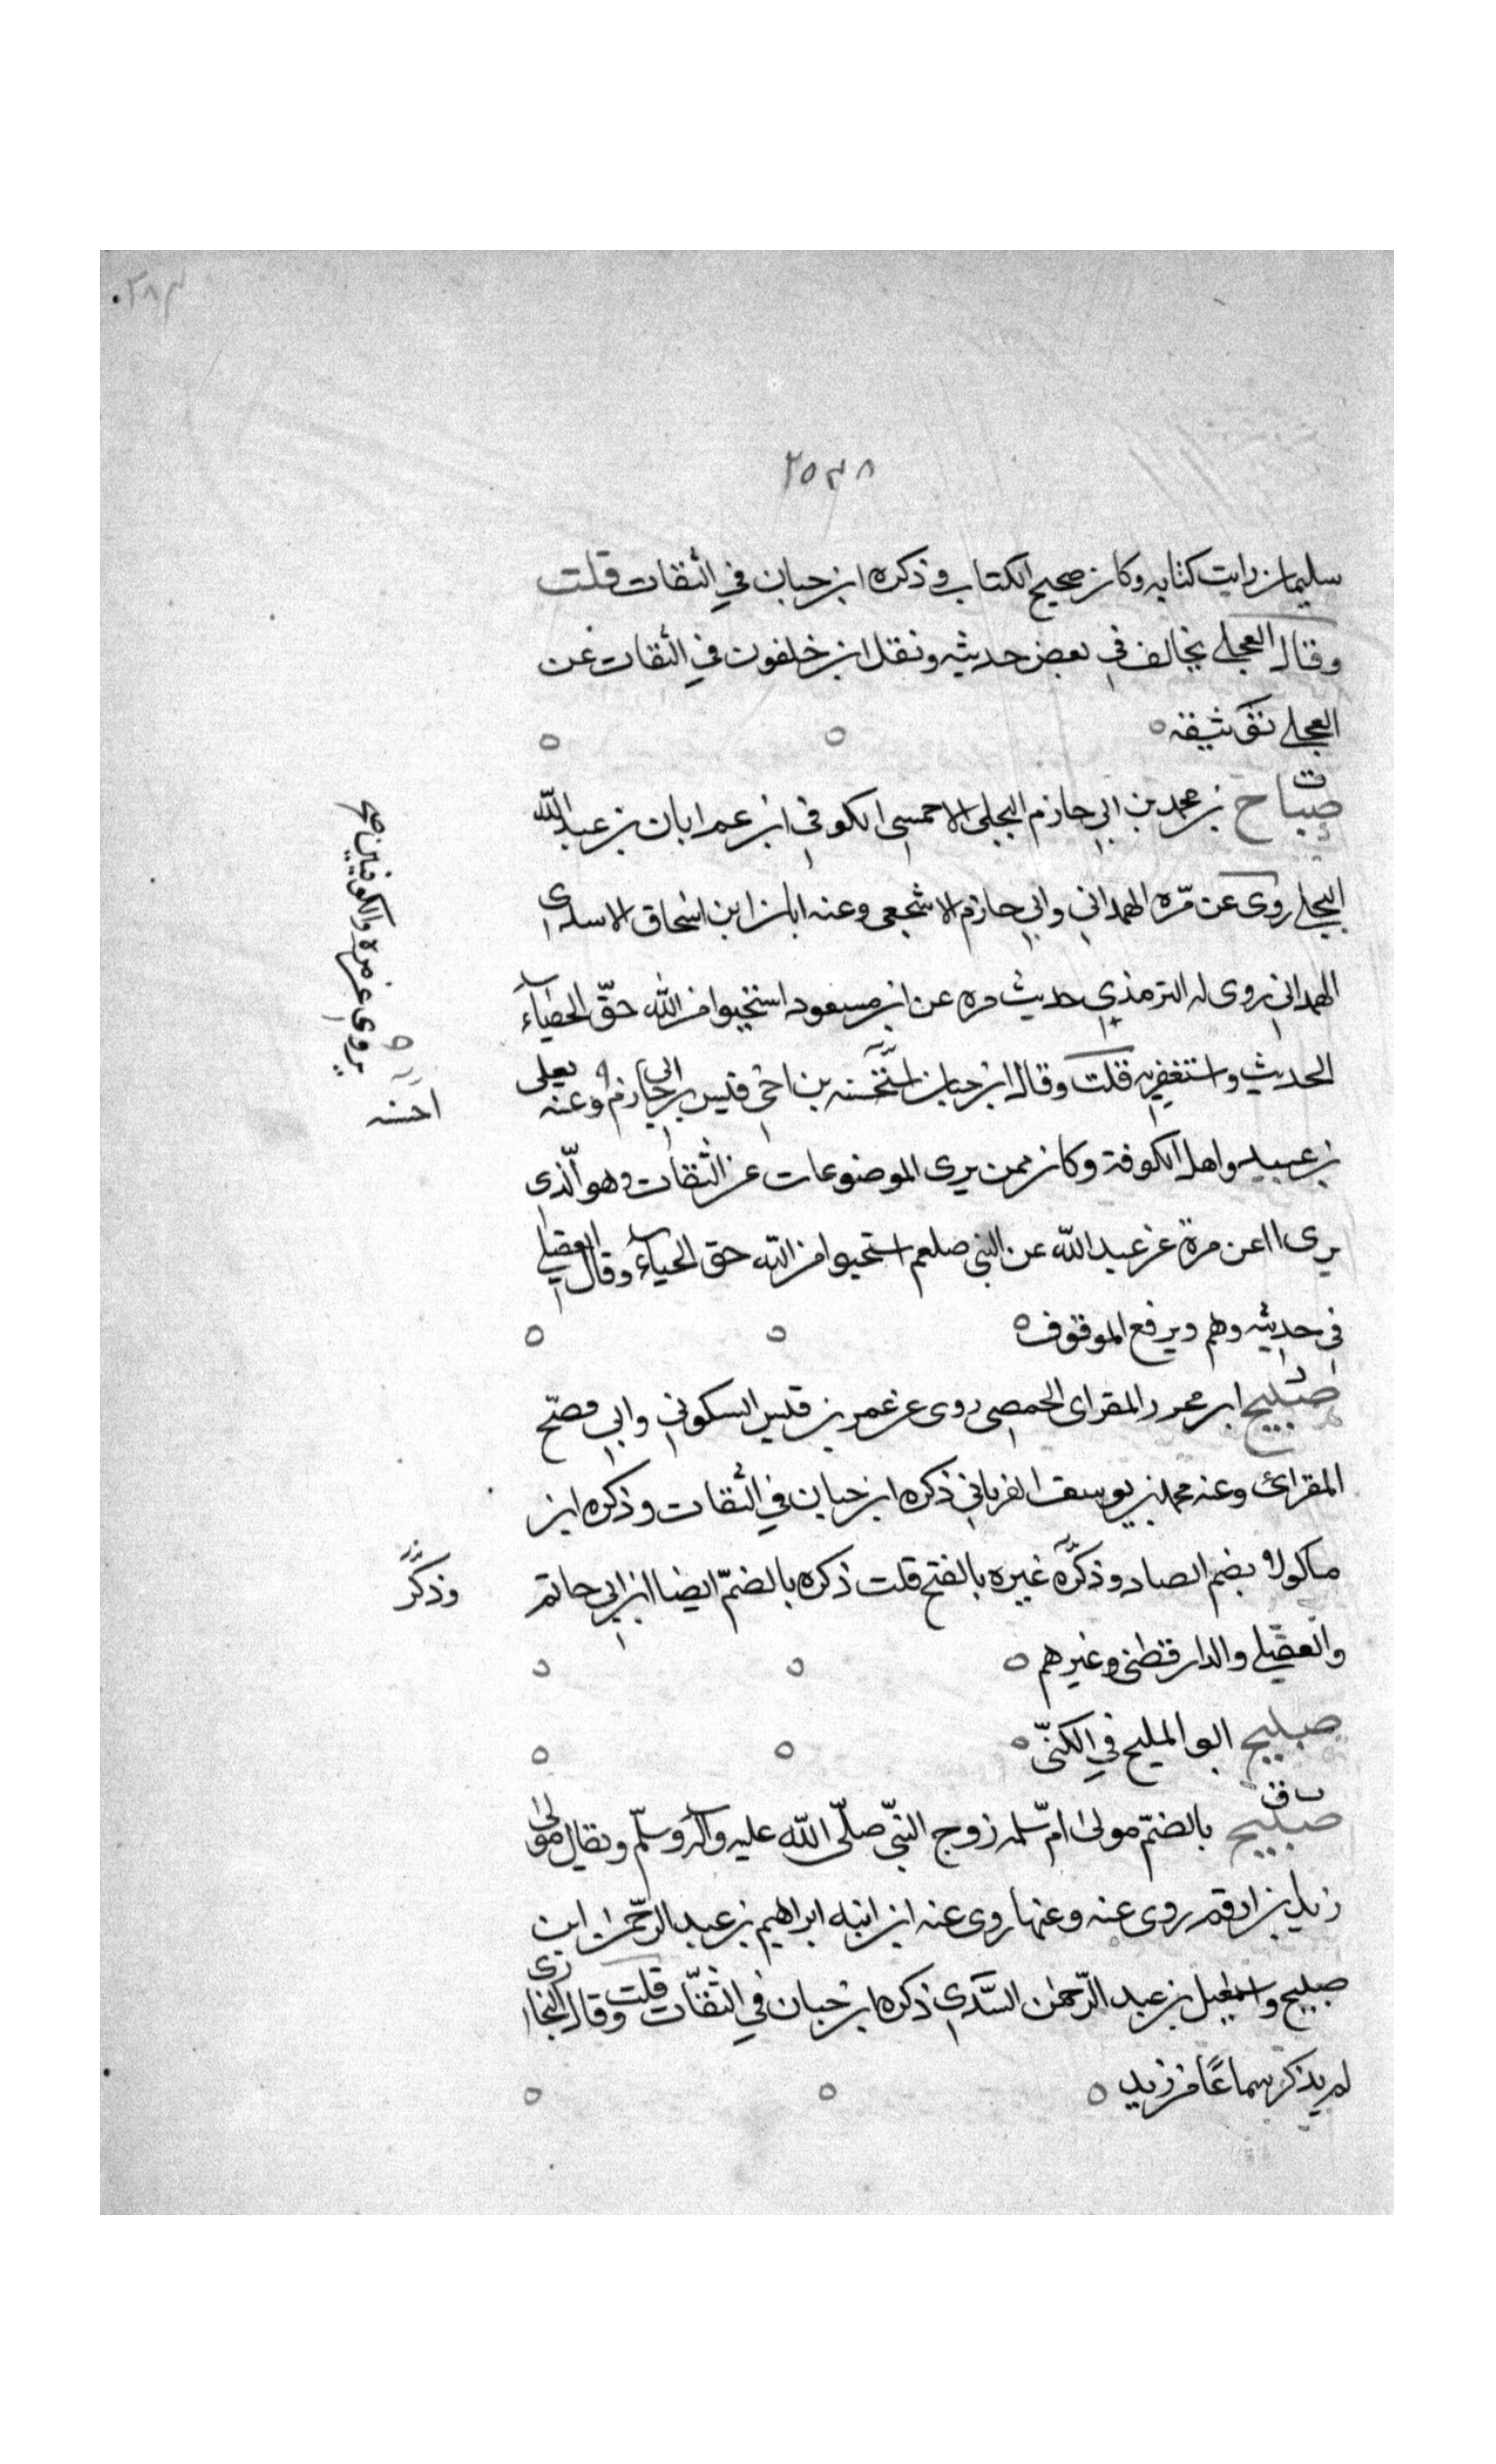 ٢٨٣
٢٥٣٨
سليمان رايت كتابه وكان صحيح الكتاب وذكره ابن حبان في الثقات قلت
وقال العجلي يخالف في بعض حديثه ونقل ابن خلفون في الثقات عن
العجلي توثيقه
ت
صباح بن محمد بن ابي حازم البجلي الاحمسي الكوفي ابن عم ابان بن عبد الله
البجلي روى عن مرّه الهمداني وابي حازم الاشجعي وعنه ابان ابن اسحاق الاسدي
الهمداني روى له الترمذي حديث مره عن ابن مسعود استحيوا من الله حقّ الحياء
الحديث واستغفربه قلت وقال ابن حبان بن اخي قيس بن ابي حازم وعنه يعلى
بن عبيد واهل الكوفة وكان ممن يرى الموضوعات عن الثقات وهو الّذي
يرى عن مرة عن عبد الله عن النبي صلعم استحيوا من الله حق الحياء وقال العقيلي
في حديثه وهم ويرفع الموقوف
صبيح ابن محرر المقراى الحمصي روى عن عمر بن قليس السكوني وابي مصبّح
المقرائ وعنه محمد بن يوسف الفريابي ذكره ابن حبان في الثقات وذكره ابن
ماكولا بضم الصاد وذكره غيره بالفتح قلت ذكره بالضمّ ايضا ابن ابي حاتم
والعقيلي والدارقطني وغيرهم
صبيح ابو المليح في الكنّى
ت ق
صبيح بالضمّ مولى امّ سلمه زوج النبيّ صلّى الله عليه وآله وسلّم ويقال مولى
زيد بن ارقم روى عنه وعنها روى عنه ابن ابنه ابراهيم بن عبد الرّحمن ابن
صبيح واسمعيل بن عبد الرّحمن السّدي ذكره ابن حبان في الثقّات قلت وقال البخاري
لم يذكر سماعًا من زيد
يروي عن مرة والكوفيين صح
احسنه
وذكر